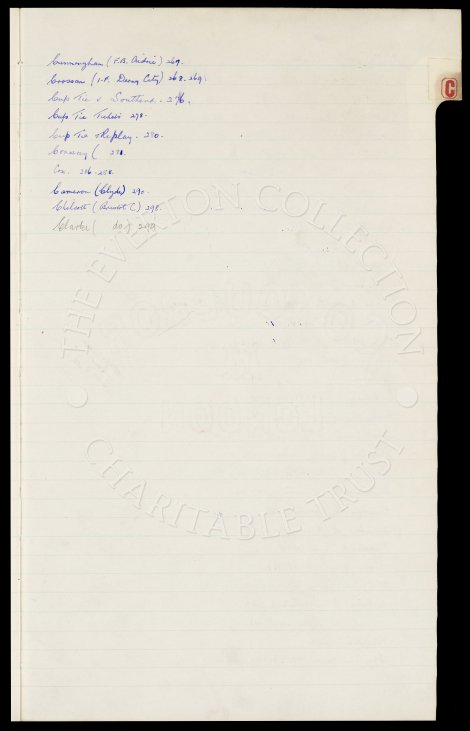 Cunningham (F.B. Airdrie) 269.
Crossan (I-F. Derry City) 268. 269.
C
Cup Tie v Southend. 276.
Cup Tie Tickets 278.
Cup Tie Replay. 280.
( 281.
Cox. 286.
Cameron (Clyde) 290.
Chilcott (Bristol C) 298.
Clarke ( do) 299
THE EVERTON COLLECTION
CHARITABLE TRUST